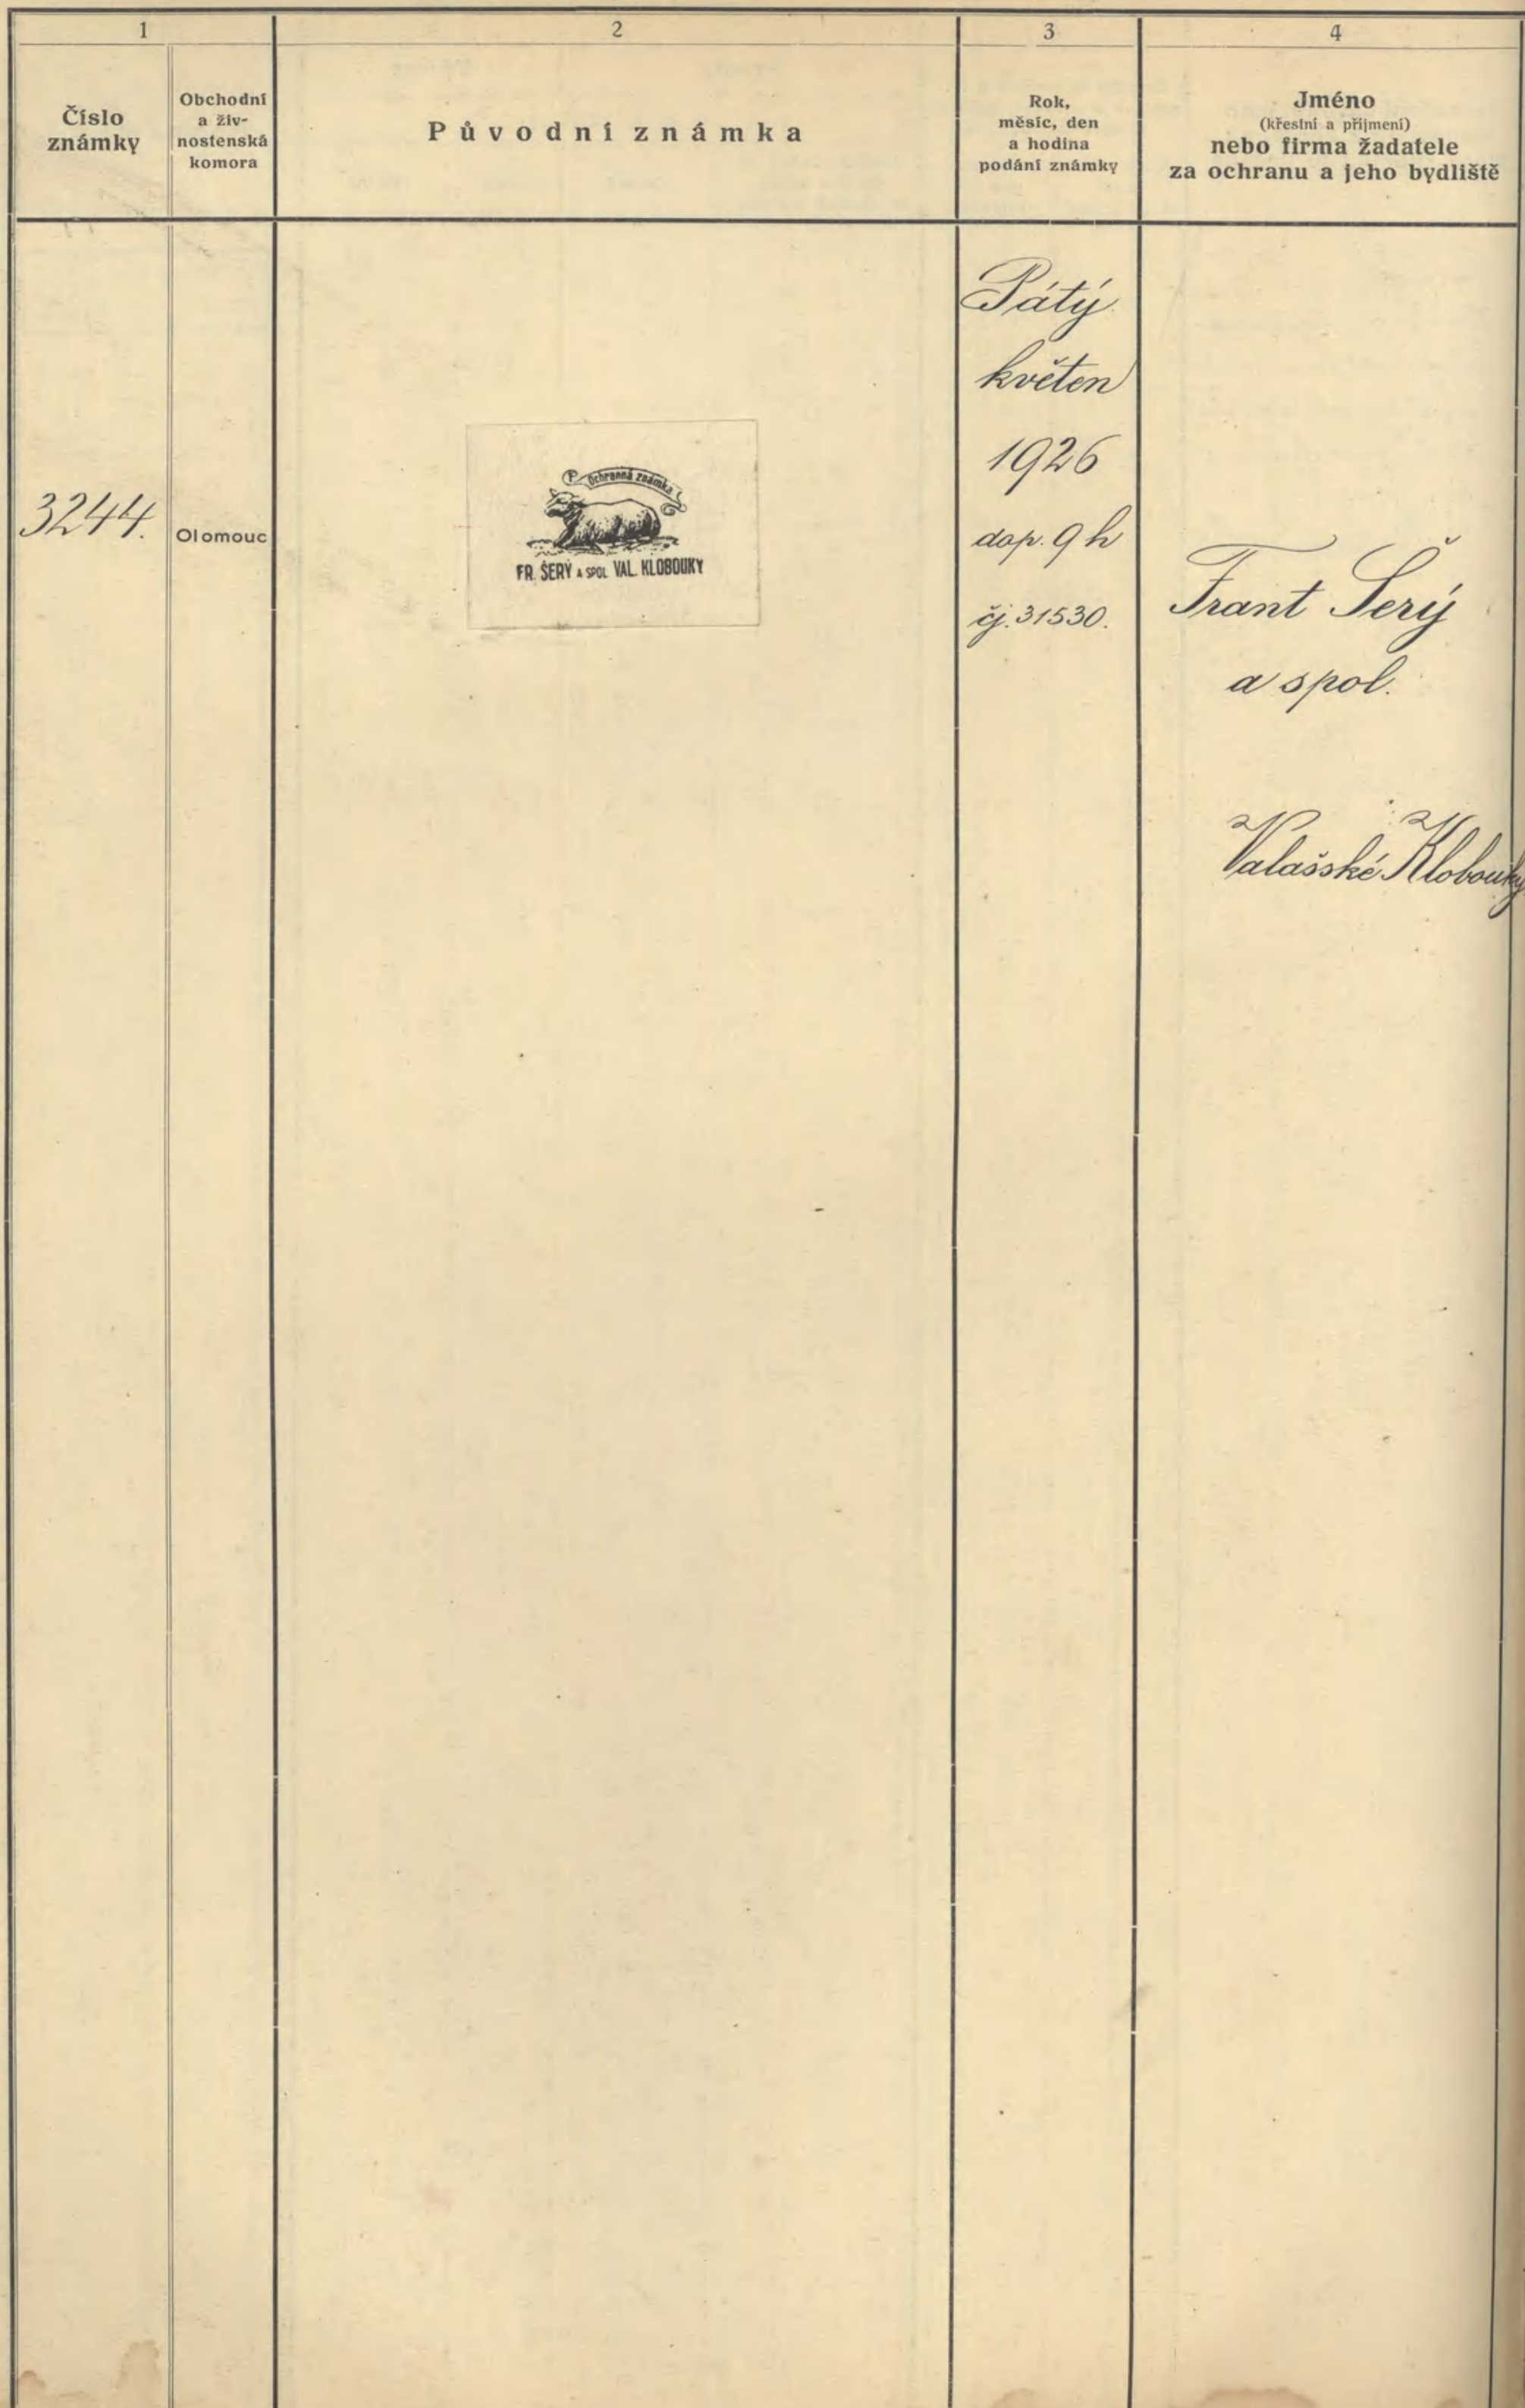 1
2
3
4
Číslo
známky
Obchodní
a živ-
nostenská
komora
Původní známka
Rok,
měsíc, den
a hodina
podání známky
Jméno
(křestní a přijmení)
nebo firma žadatele
za ochranu a jeho bydliště
3244.
Olomouc
Ochranná známka
FR. ŠERÝ A SPOL. VAL. KLOBOUKY
Pátý
květen
1926
dop. 9 h
čj. 31530.
Frant Šerý
a spol.
Valašské Klobouky